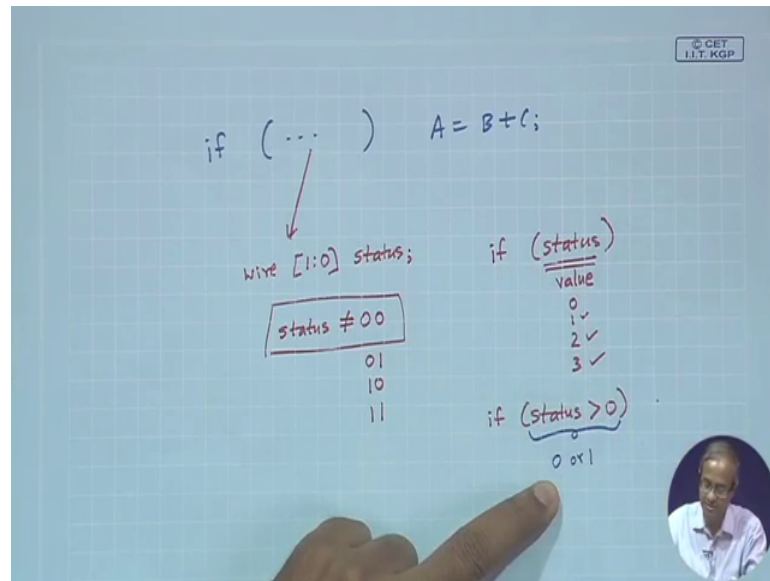 © CET
I.I.T. KGP
if (... ) A = B + C;
wire [1:0] status;
status ≠ 00
01
10
11
if (status)
value
0
1 ✓
2 ✓
3 ✓
if (status > 0)
0 or 1